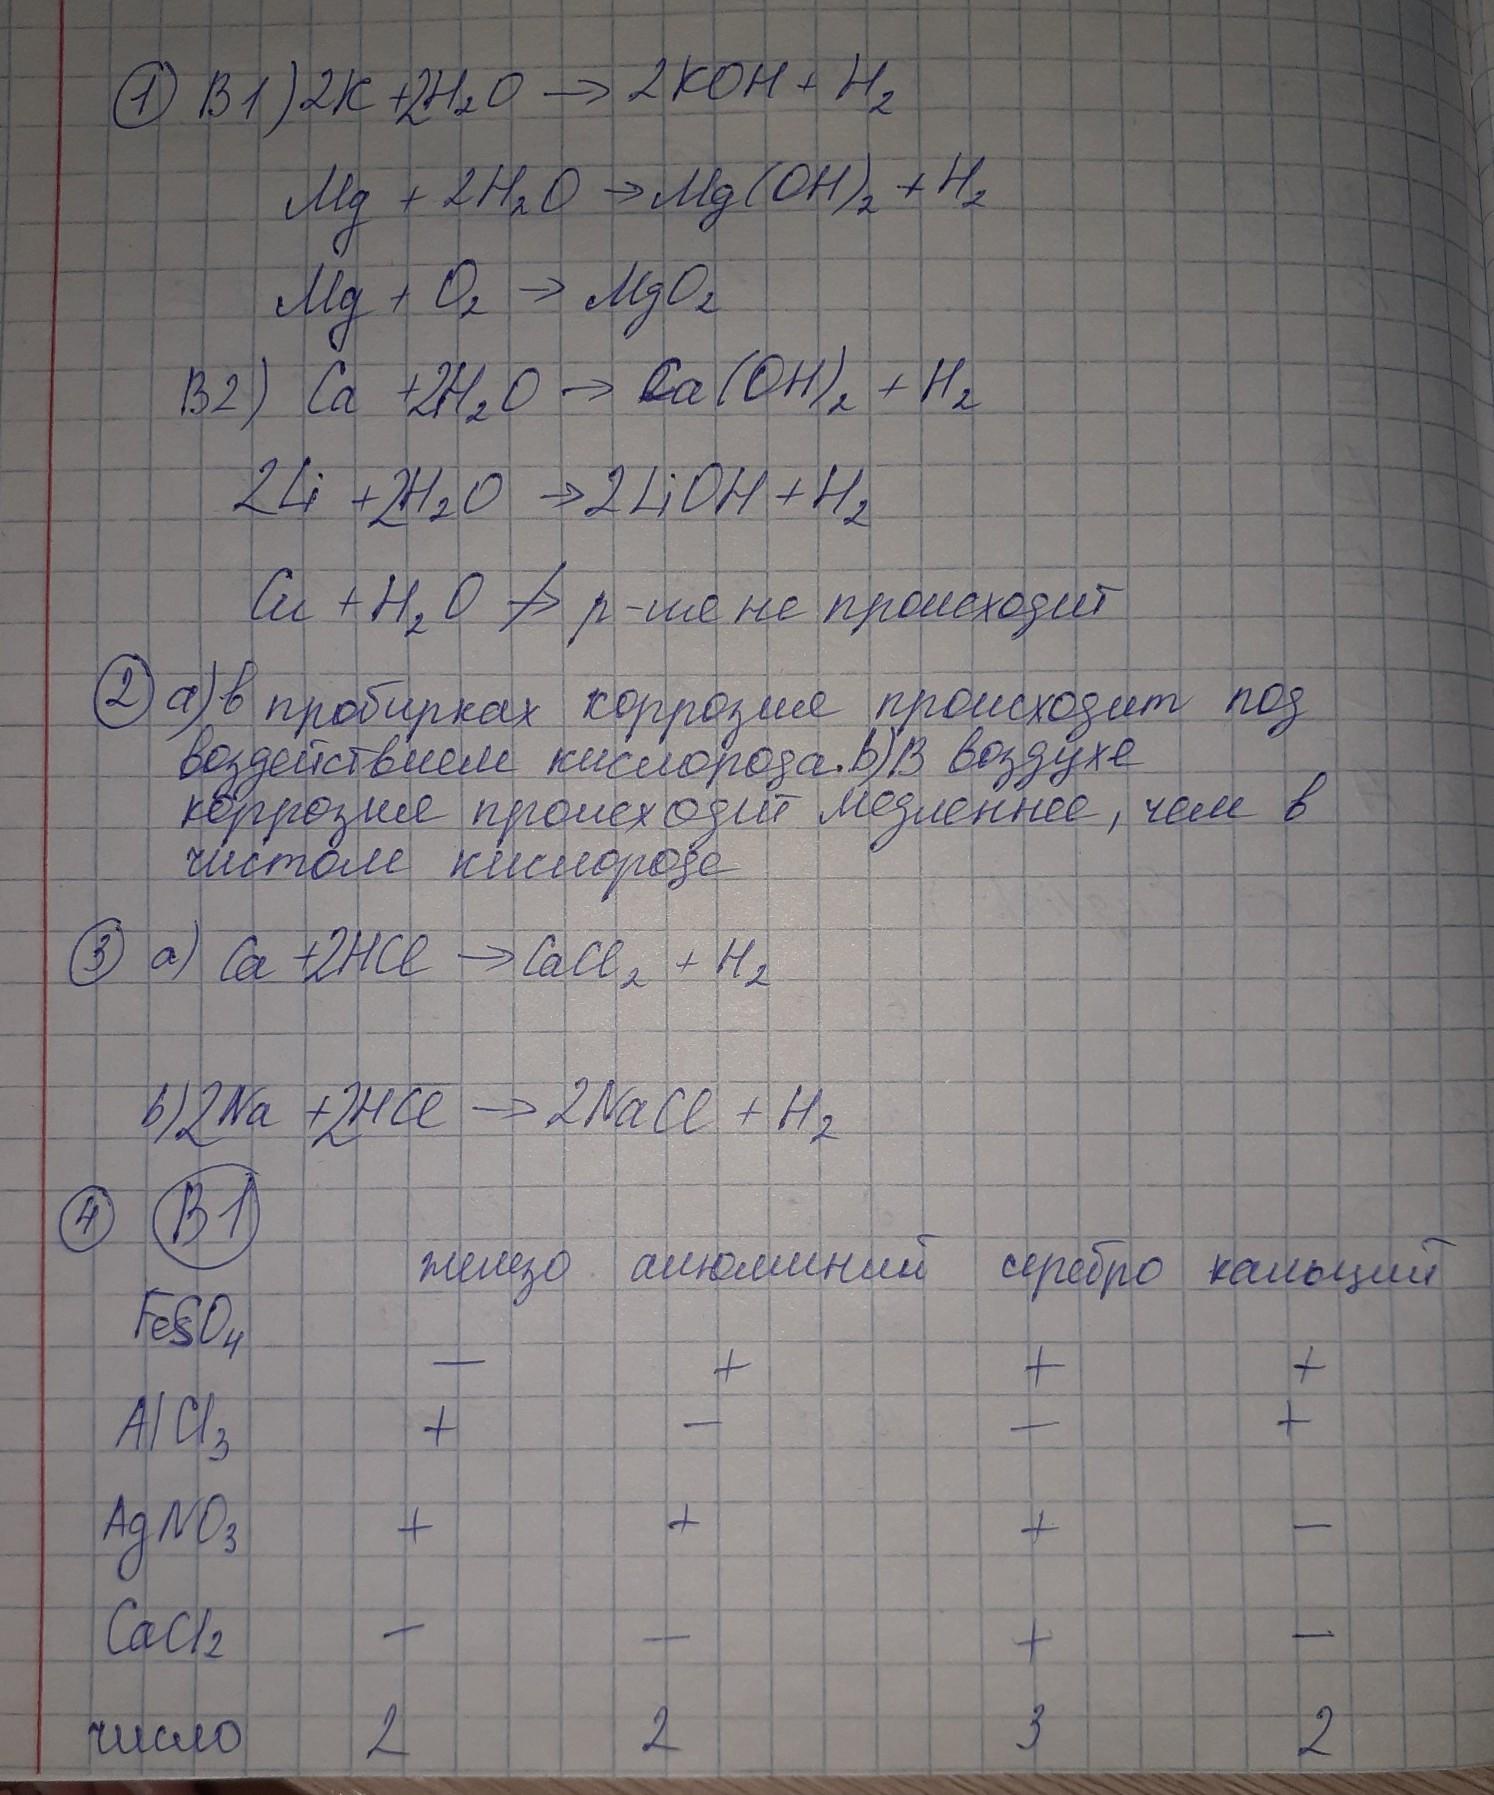 ① В1) 2K + 2H₂O → 2KOH + H₂
Mg + 2H₂O → Mg(OH)₂ + H₂
Mg + O₂ → MgO₂
В2) Ca + 2H₂O → Ca(OH)₂ + H₂
2Li + 2H₂O → 2LiOH + H₂
Cu + H₂O ↛ р-ия не происходит
② а) в пробирках коррозия происходит под
воздействием кислорода. b) В воздухе
коррозия происходит медленнее, чем в
чистом кислороде
③ а) Ca + 2HCl → CaCl₂ + H₂
b) 2Na + 2HCl → 2NaCl + H₂
④ В1
железо алюминий серебро кальций
FeSO₄
− + + +
AlCl₃ + − − +
AgNO₃ + + + −
CaCl₂ − − + −
число 2 2 3 2